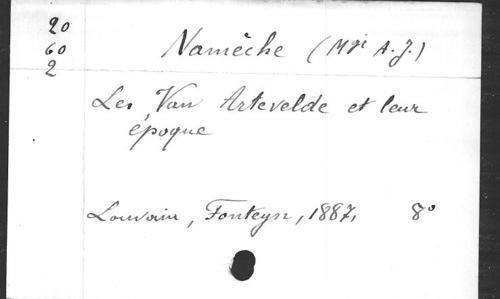 20
60
2
Namèche (Mgr A. J.)
Les Van Artevelde et leur
époque
Louvain, Fonteyn, 1887, 8°